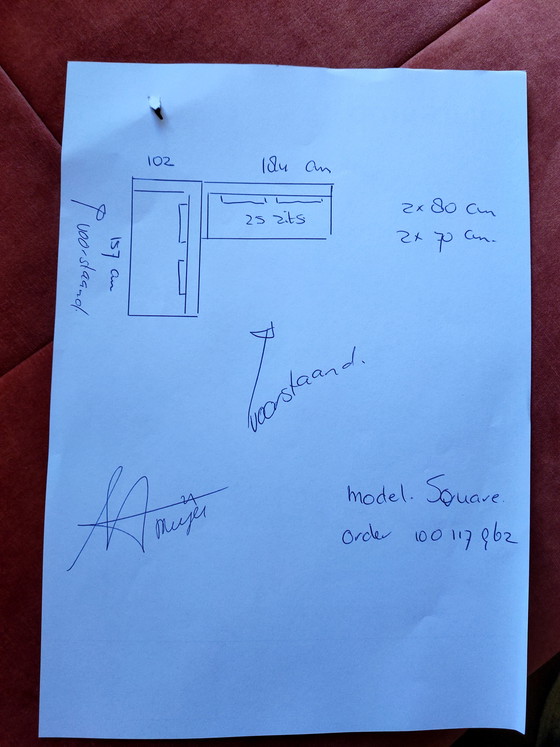 102
184 cm
2s zits
2x 80 cm
2x 70 cm.
157 cm
voorstaand
voorstaand.
Model. Square.
Order 100 117 962